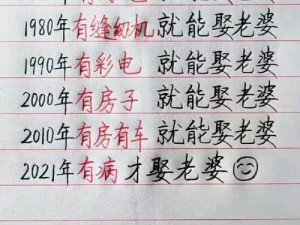 1980年有缝纫机就能娶老婆
1990年有彩电就能娶老婆
2000年有房子就能娶老婆
2010年有房有车就能娶老婆
2021年有病才娶老婆